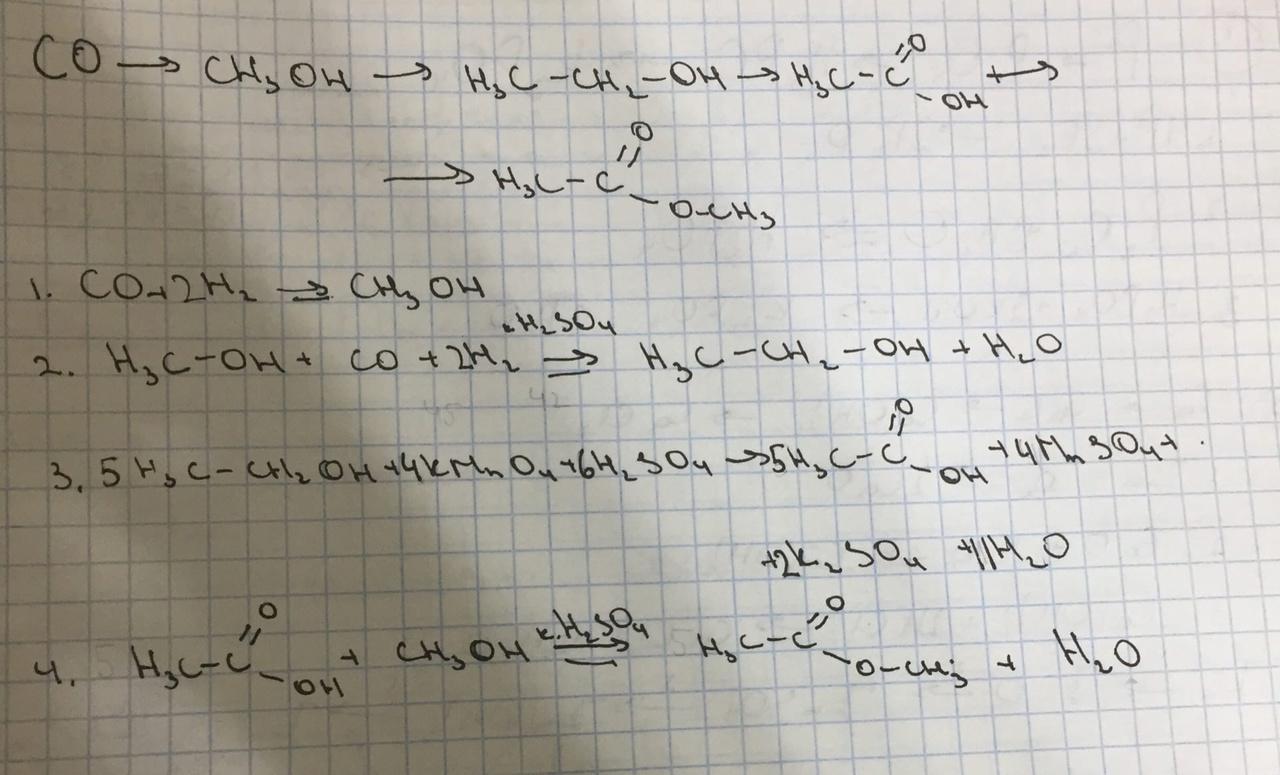 CO → CH₃OH → H₃C-CH₂-OH → H₃C-C(=O)-OH →
→ H₃C-C(=O)-O-CH₃
1. CO+2H₂ → CH₃OH
2. H₃C-OH + CO + 2H₂ ⇌ (к.H₂SO₄) H₃C-CH₂-OH + H₂O
3. 5H₃C-CH₂OH+4KMnO₄+6H₂SO₄ → 5H₃C-C(=O)-OH +4MnSO₄+
+2K₂SO₄ +11H₂O
4. H₃C-C(=O)-OH + CH₃OH ⇌ (к.H₂SO₄) H₃C-C(=O)-O-CH₃ + H₂O